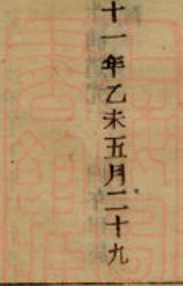 十一年乙未五月二十九